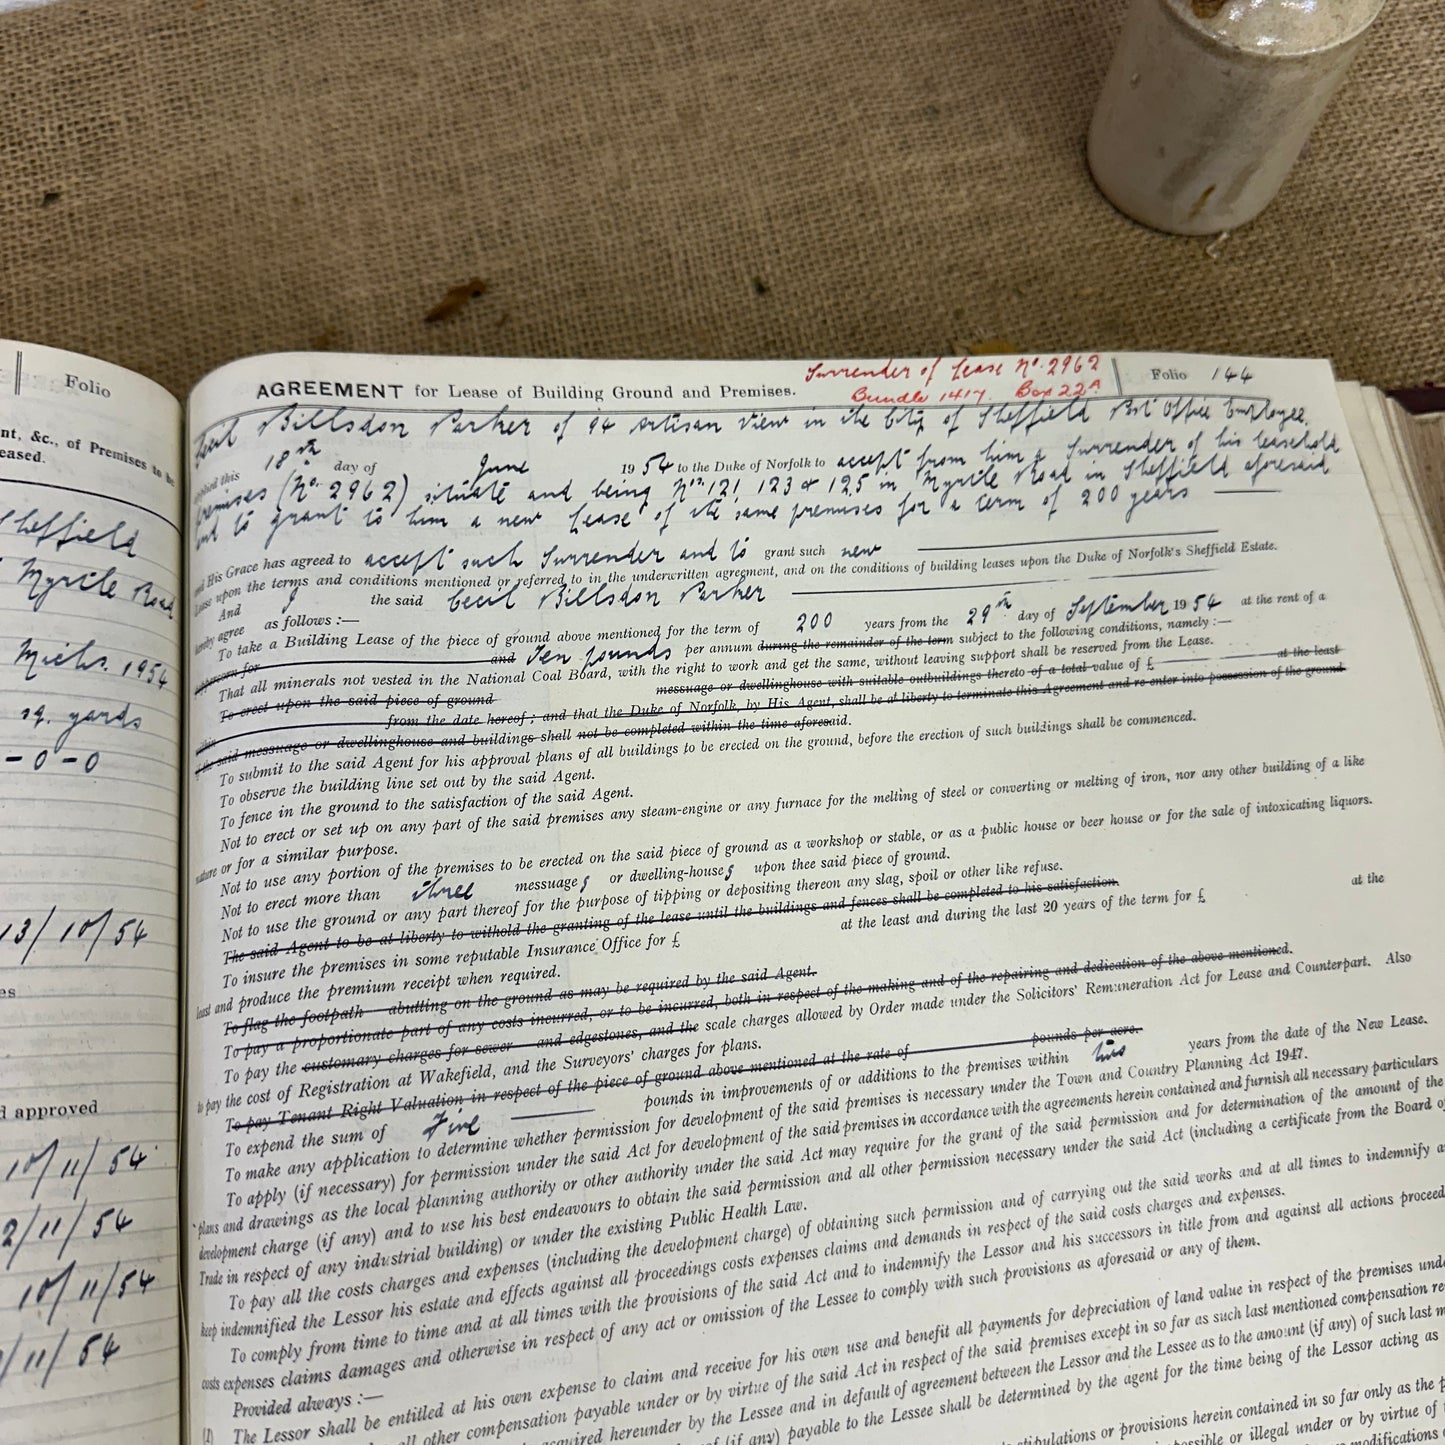 Folio
nt, &c., of Premises to be
eased.
Sheffield
Myrtle Road
Michs. 1954
sq. yards
-0-0
13/10/54
es
d approved
10/11/54
2/11/54
10/11/54
/11/54
AGREEMENT for Lease of Building Ground and Premises.
Surrender of Lease No. 2962
Bundle 1417. Box 22A
Folio 144
Cecil Billsdon Parker of 94 Artisan View in the City of Sheffield Post Office Employee.
applied this 18th day of June 1954 to the Duke of Norfolk to accept from him a Surrender of his leasehold
premises (No. 2962) situate and being Nos. 121, 123 & 125 in Myrtle Road in Sheffield aforesaid
and to grant to him a new Lease of the same premises for a term of 200 years
and His Grace has agreed to accept such Surrender and to grant such new
Lease upon the terms and conditions mentioned or referred to in the underwritten agreement, and on the conditions of building leases upon the Duke of Norfolk's Sheffield Estate.
And I the said Cecil Billsdon Parker
hereby agree as follows :—
To take a Building Lease of the piece of ground above mentioned for the term of 200 years from the 29th day of September 1954 at the rent of a
peppercorn for and Ten pounds per annum during the remainder of the term subject to the following conditions, namely :—
That all minerals not vested in the National Coal Board, with the right to work and get the same, without leaving support shall be reserved from the Lease.
To erect upon the said piece of ground messuage or dwellinghouse with suitable outbuildings thereto of a total value of £ at the least
within from the date hereof ; and that the Duke of Norfolk, by His Agent, shall be at liberty to terminate this Agreement and re-enter into possession of the ground
if the said messuage or dwellinghouse and buildings shall not be completed within the time aforesaid.
To submit to the said Agent for his approval plans of all buildings to be erected on the ground, before the erection of such buildings shall be commenced.
To observe the building line set out by the said Agent.
To fence in the ground to the satisfaction of the said Agent.
Not to erect or set up on any part of the said premises any steam-engine or any furnace for the melting of steel or converting or melting of iron, nor any other building of a like
nature or for a similar purpose.
Not to use any portion of the premises to be erected on the said piece of ground as a workshop or stable, or as a public house or beer house or for the sale of intoxicating liquors.
Not to erect more than three messuages or dwelling-houses upon thee said piece of ground.
Not to use the ground or any part thereof for the purpose of tipping or depositing thereon any slag, spoil or other like refuse.
The said Agent to be at liberty to withold the granting of the lease until the buildings and fences shall be completed to his satisfaction.
To insure the premises in some reputable Insurance Office for £ at the least and during the last 20 years of the term for £ at the
least and produce the premium receipt when required.
To flag the footpath abutting on the ground as may be required by the said Agent.
To pay a proportionate part of any costs incurred, or to be incurred, both in respect of the making and of the repairing and dedication of the above mentioned.
To pay the customary charges for sewer and edgestones, and the scale charges allowed by Order made under the Solicitors' Remuneration Act for Lease and Counterpart. Also
to pay the cost of Registration at Wakefield, and the Surveyors' charges for plans.
To pay Tenant Right Valuation in respect of the piece of ground above mentioned at the rate of pounds per acre.
To expend the sum of Five pounds in improvements of or additions to the premises within two years from the date of the New Lease.
To make any application to determine whether permission for development of the said premises is necessary under the Town and Country Planning Act 1947.
To apply (if necessary) for permission under the said Act for development of the said premises in accordance with the agreements herein contained and furnish all necessary particulars
plans and drawings as the local planning authority or other authority under the said Act may require for the grant of the said permission and for determination of the amount of the
development charge (if any) and to use his best endeavours to obtain the said permission and all other permission necessary under the said Act (including a certificate from the Board o
Trade in respect of any industrial building) or under the existing Public Health Law.
To pay all the costs charges and expenses (including the development charge) of obtaining such permission and of carrying out the said works and at all times to indemnify a
keep indemnified the Lessor his estate and effects against all proceedings costs expenses claims and demands in respect of the said costs charges and expenses.
To comply from time to time and at all times with the provisions of the said Act and to indemnify the Lessor and his successors in title from and against all actions proceed
costs expenses claims damages and otherwise in respect of any act or omission of the Lessee to comply with such provisions as aforesaid or any of them.
Provided always :—
(1) The Lessor shall be entitled at his own expense to claim and receive for his own use and benefit all payments for depreciation of land value in respect of the premises und
all other compensation payable under or by virtue of the said Act in respect of the said premises except in so far as such last mentioned compensation re
acquired hereunder by the Lessee and in default of agreement between the Lessor and the Lessee as to the amount (if any) of such last m
of (if any) payable to the Lessee shall be determined by the agent for the time being of the Lessor acting as
stipulations or provisions herein contained in so far only as the p
possible or illegal under or by virtue of
modifications